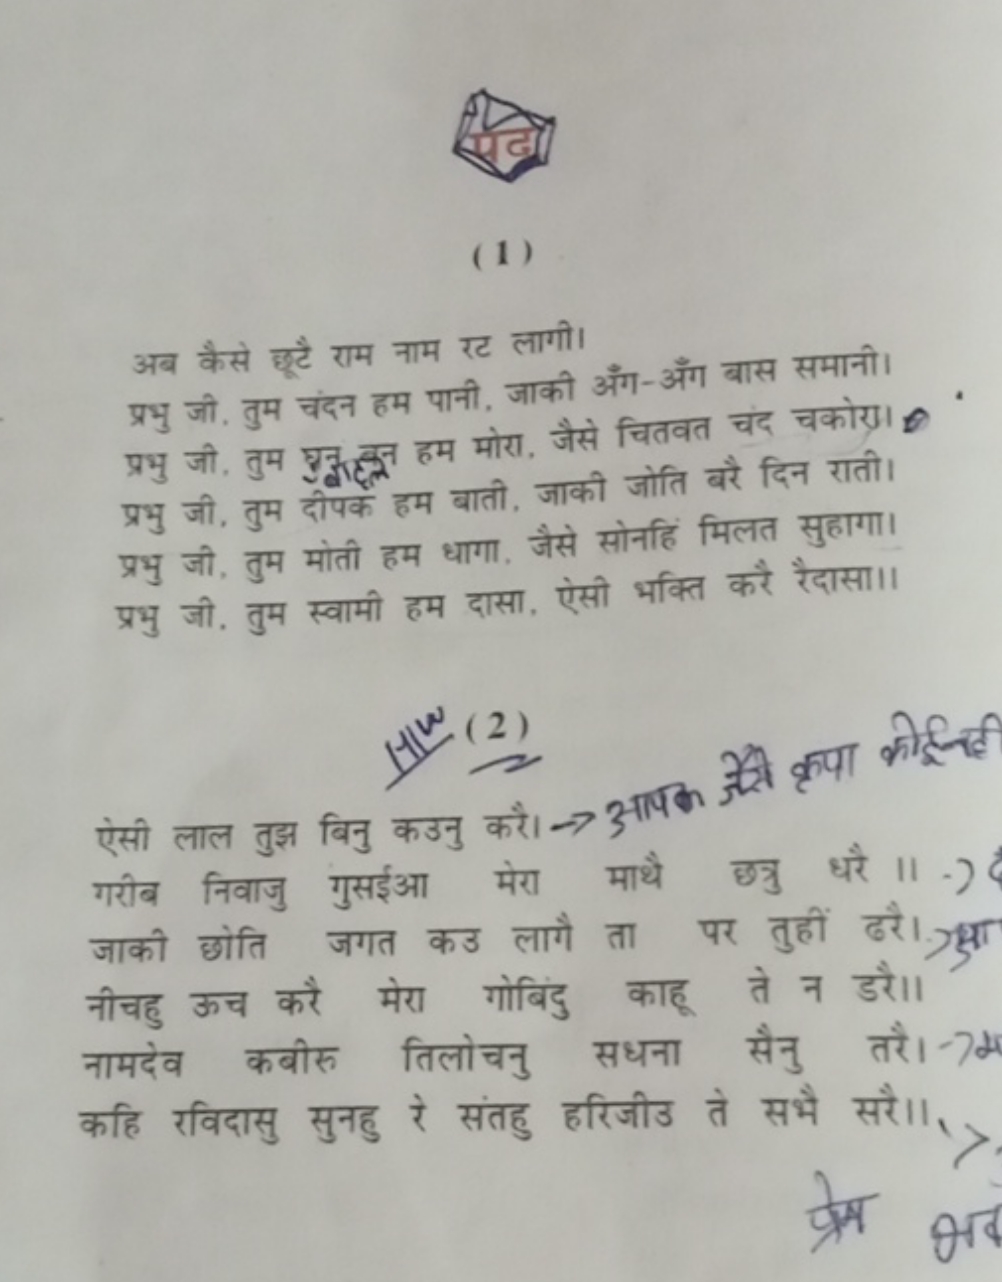 पद
(1)
अब कैसे छूटै राम नाम रट लागी।
प्रभु जी, तुम चंदन हम पानी, जाकी अँग-अँग बास समानी।
प्रभु जी, तुम घन बन हम मोरा, जैसे चितवत चंद चकोरा।
बादल
प्रभु जी, तुम दीपक हम बाती, जाकी जोति बरै दिन राती।
प्रभु जी, तुम मोती हम धागा, जैसे सोनहिं मिलत सुहागा।
प्रभु जी, तुम स्वामी हम दासा, ऐसी भक्ति करै रैदासा।।
H/W (2)
ऐसी लाल तुझ बिनु कउनु करै। -> आपके जैसे कृपा कोई नही
गरीब निवाजु गुसईआ मेरा माथै छत्रु धरै ।। ->
जाकी छोति जगत कउ लागै ता पर तुहीं ढरै। ->
नीचहु ऊच करै मेरा गोबिंदु काहू ते न डरै।।
नामदेव कबीरु तिलोचनु सधना सैनु तरै। ->
कहि रविदासु सुनहु रे संतहु हरिजीउ ते सभै सरै।।
प्रेम